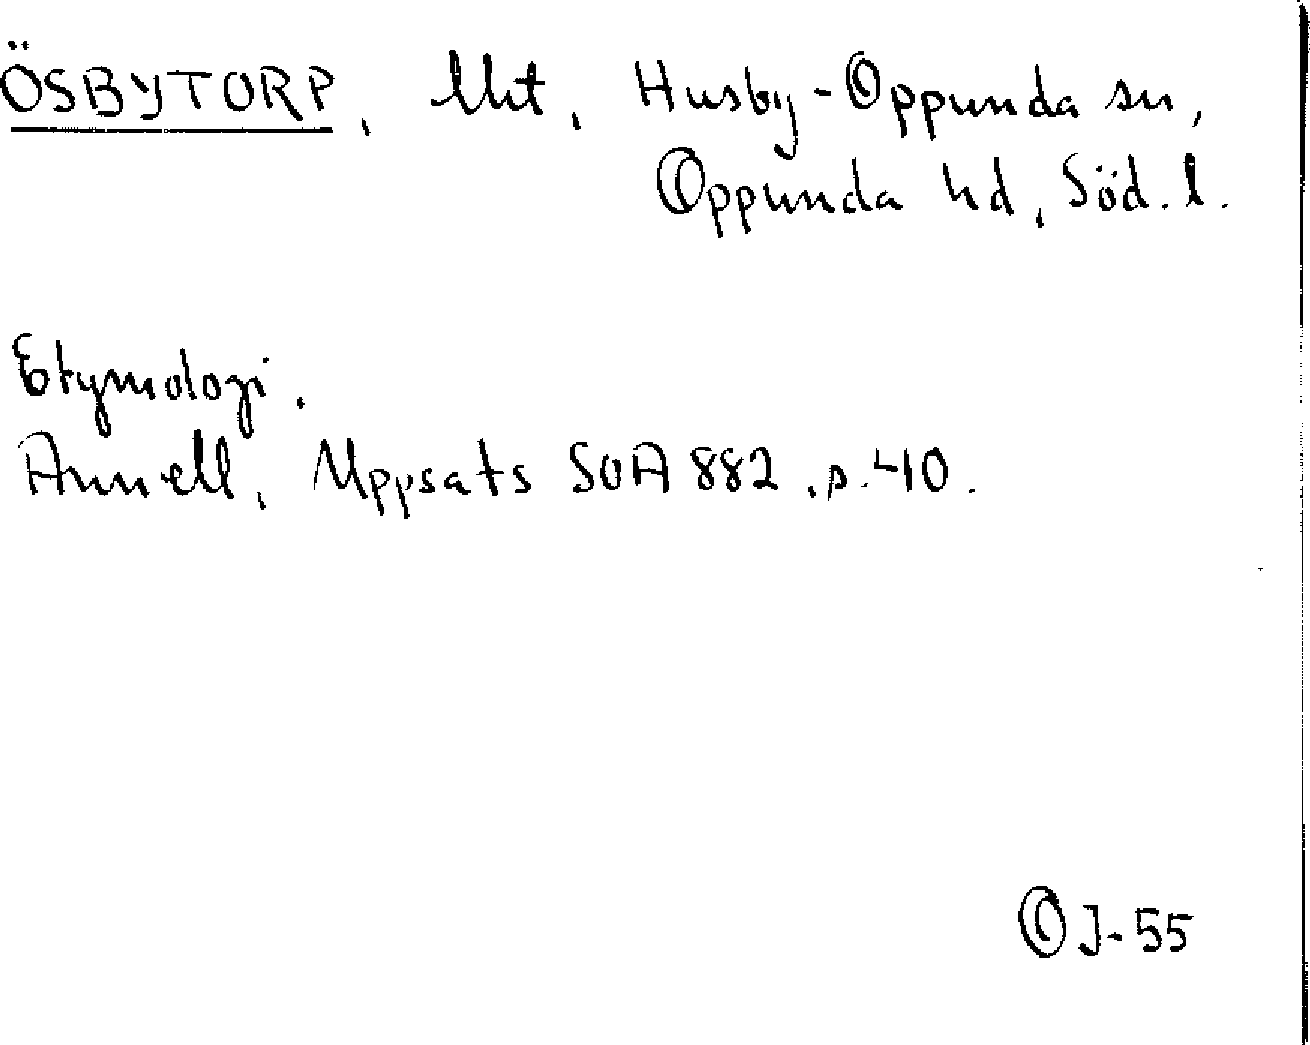 ÖSBYTORP, Utt, Husby-Oppunda sn,
Oppunda hd, Söd. l.
Etymologi.
Annell, Uppsats SOA 882, s. 40.
OJ-55